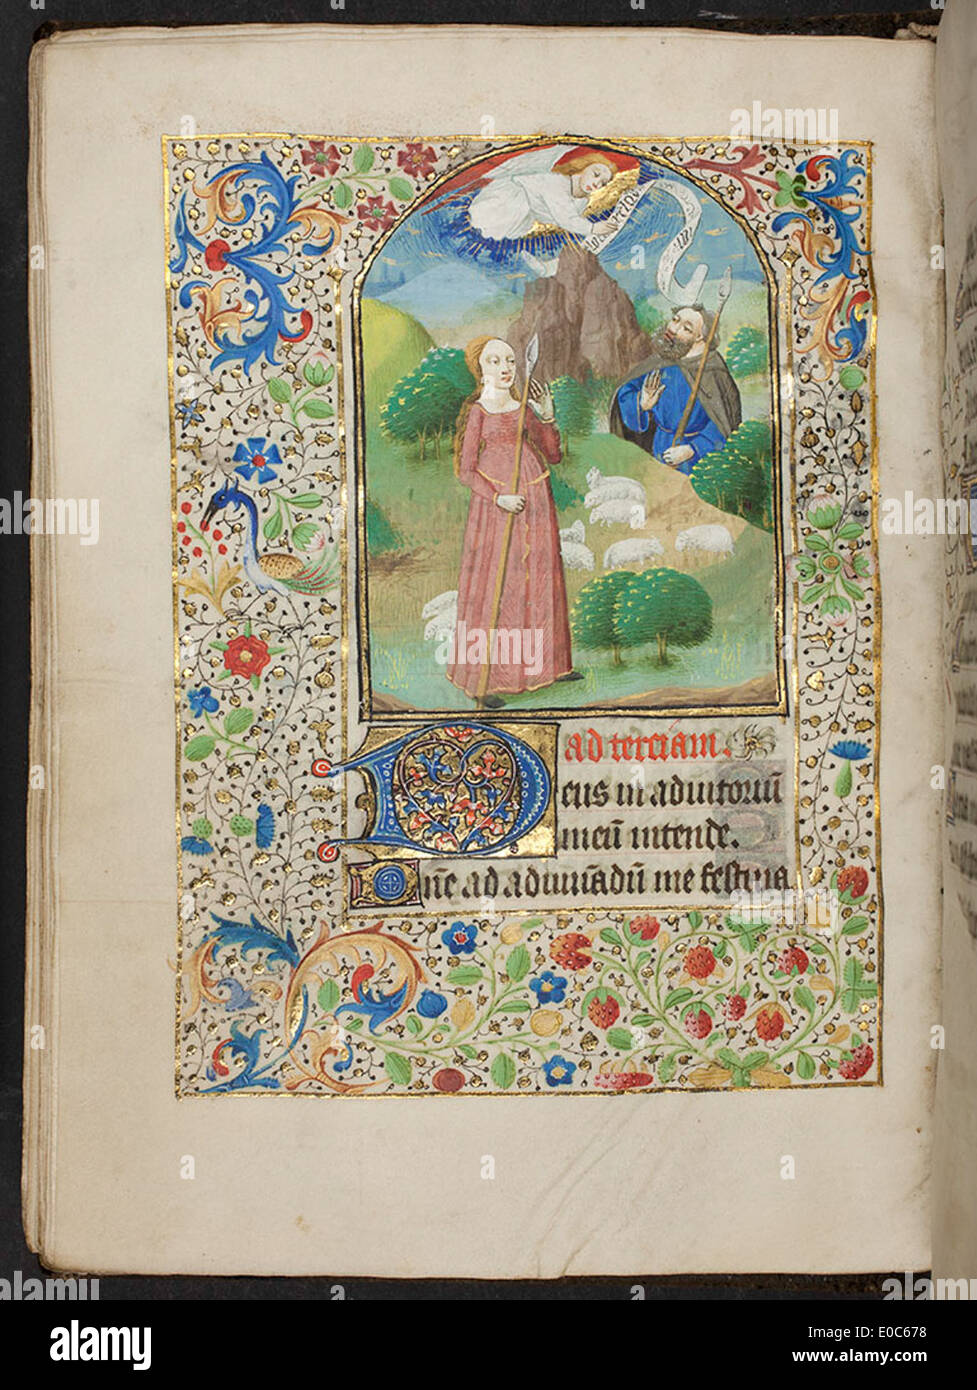 ad terciam.
Deus in adiutoriū
meū intende.
Dn̄e ad adiuuādū me festina
alamy
E0C678
www.alamy.com